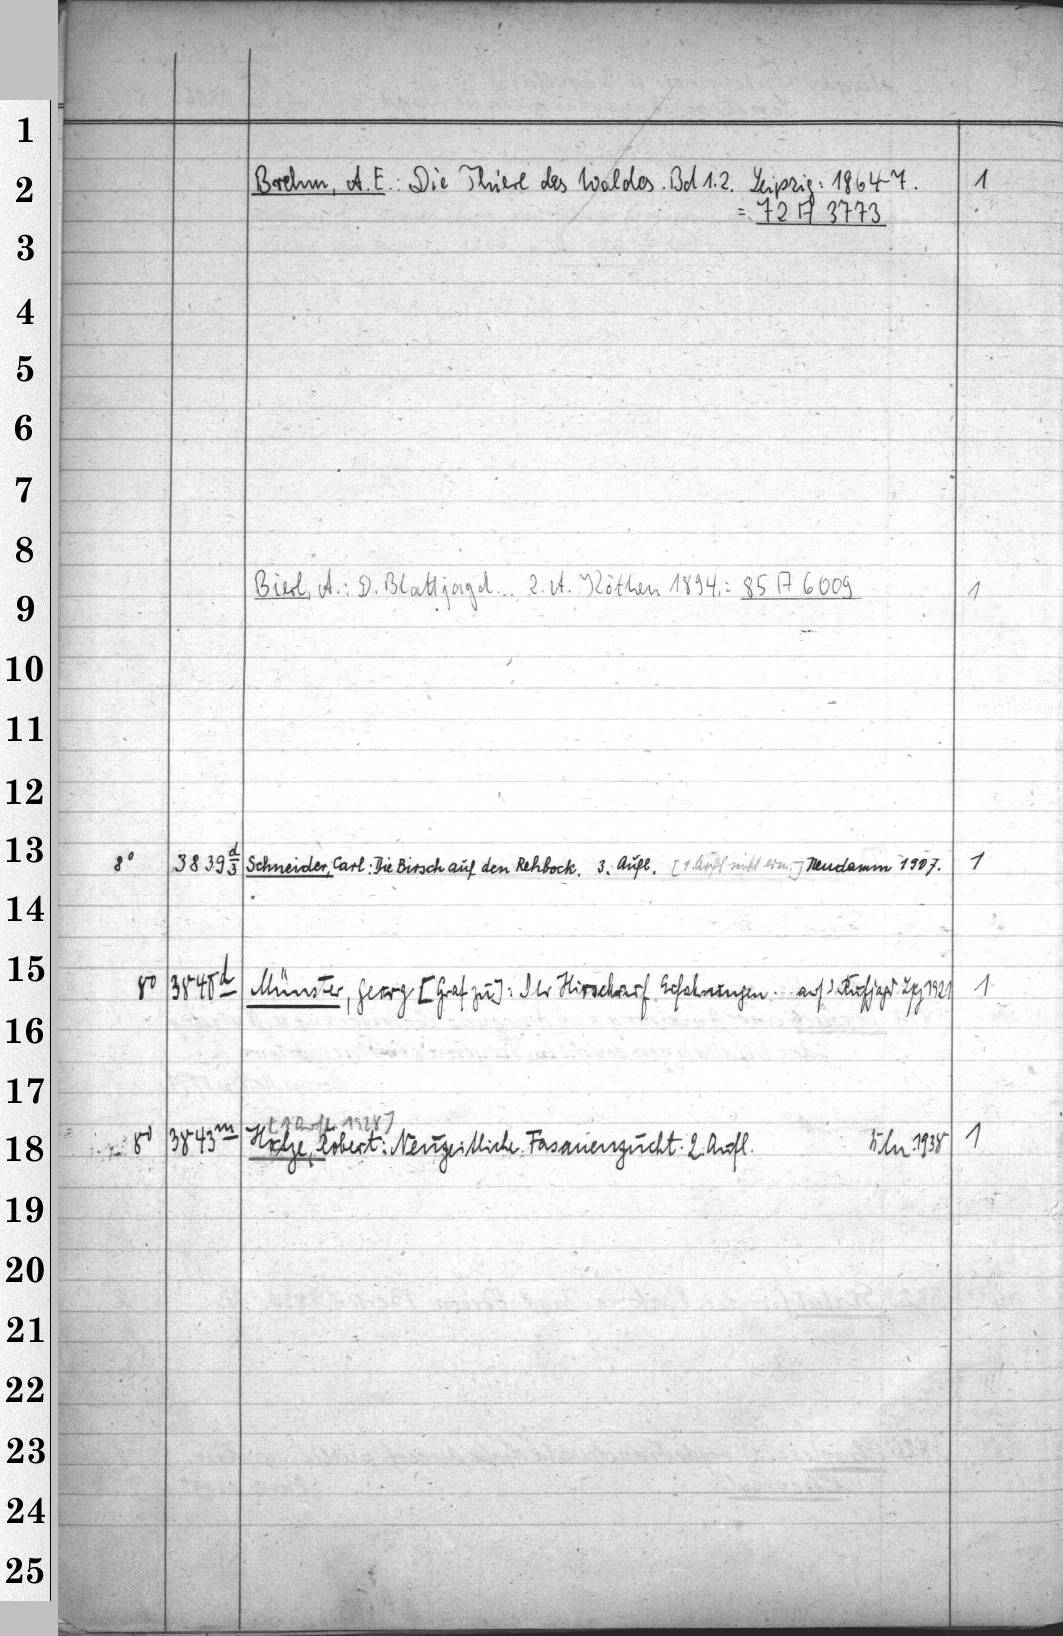 1
2 Brehm, A. E.: Die Thiere des Waldes. Bd 1.2. Leipzig: 1864-7. 1
= 72 A 3773
3
4
5
6
7
8
9 Bierl, A.: D. Blattjagd... 2. A. Köthen 1894.= 85 A 6009 1
10
11
12
13 8° 3839 d/3 Schneider, Carl: Die Birsch auf den Rehbock. 3. Aufl. [1. Aufl nicht erm.] Neudamm 1907. 1
14
15 8° 3840 d Münster, Georg [Graf zu]: Der Hirschruf. Erfahrungen... Lpz 1921 1
16
17
[1. Aufl. 1928]
18 8° 3843 m Robert: Neuzeitliche Fasanenzucht. 2. Aufl. 1938 1
19
20
21
22
23
24
25